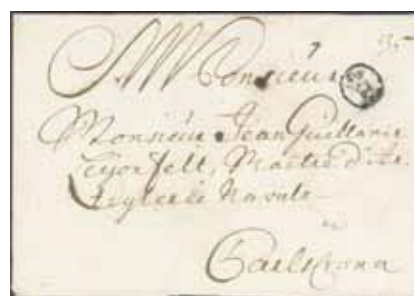 Monsieur
Monsieur Jean Guillaume
Leyonfelt, Maitre d'Ar
Navale
a
Carlscrona